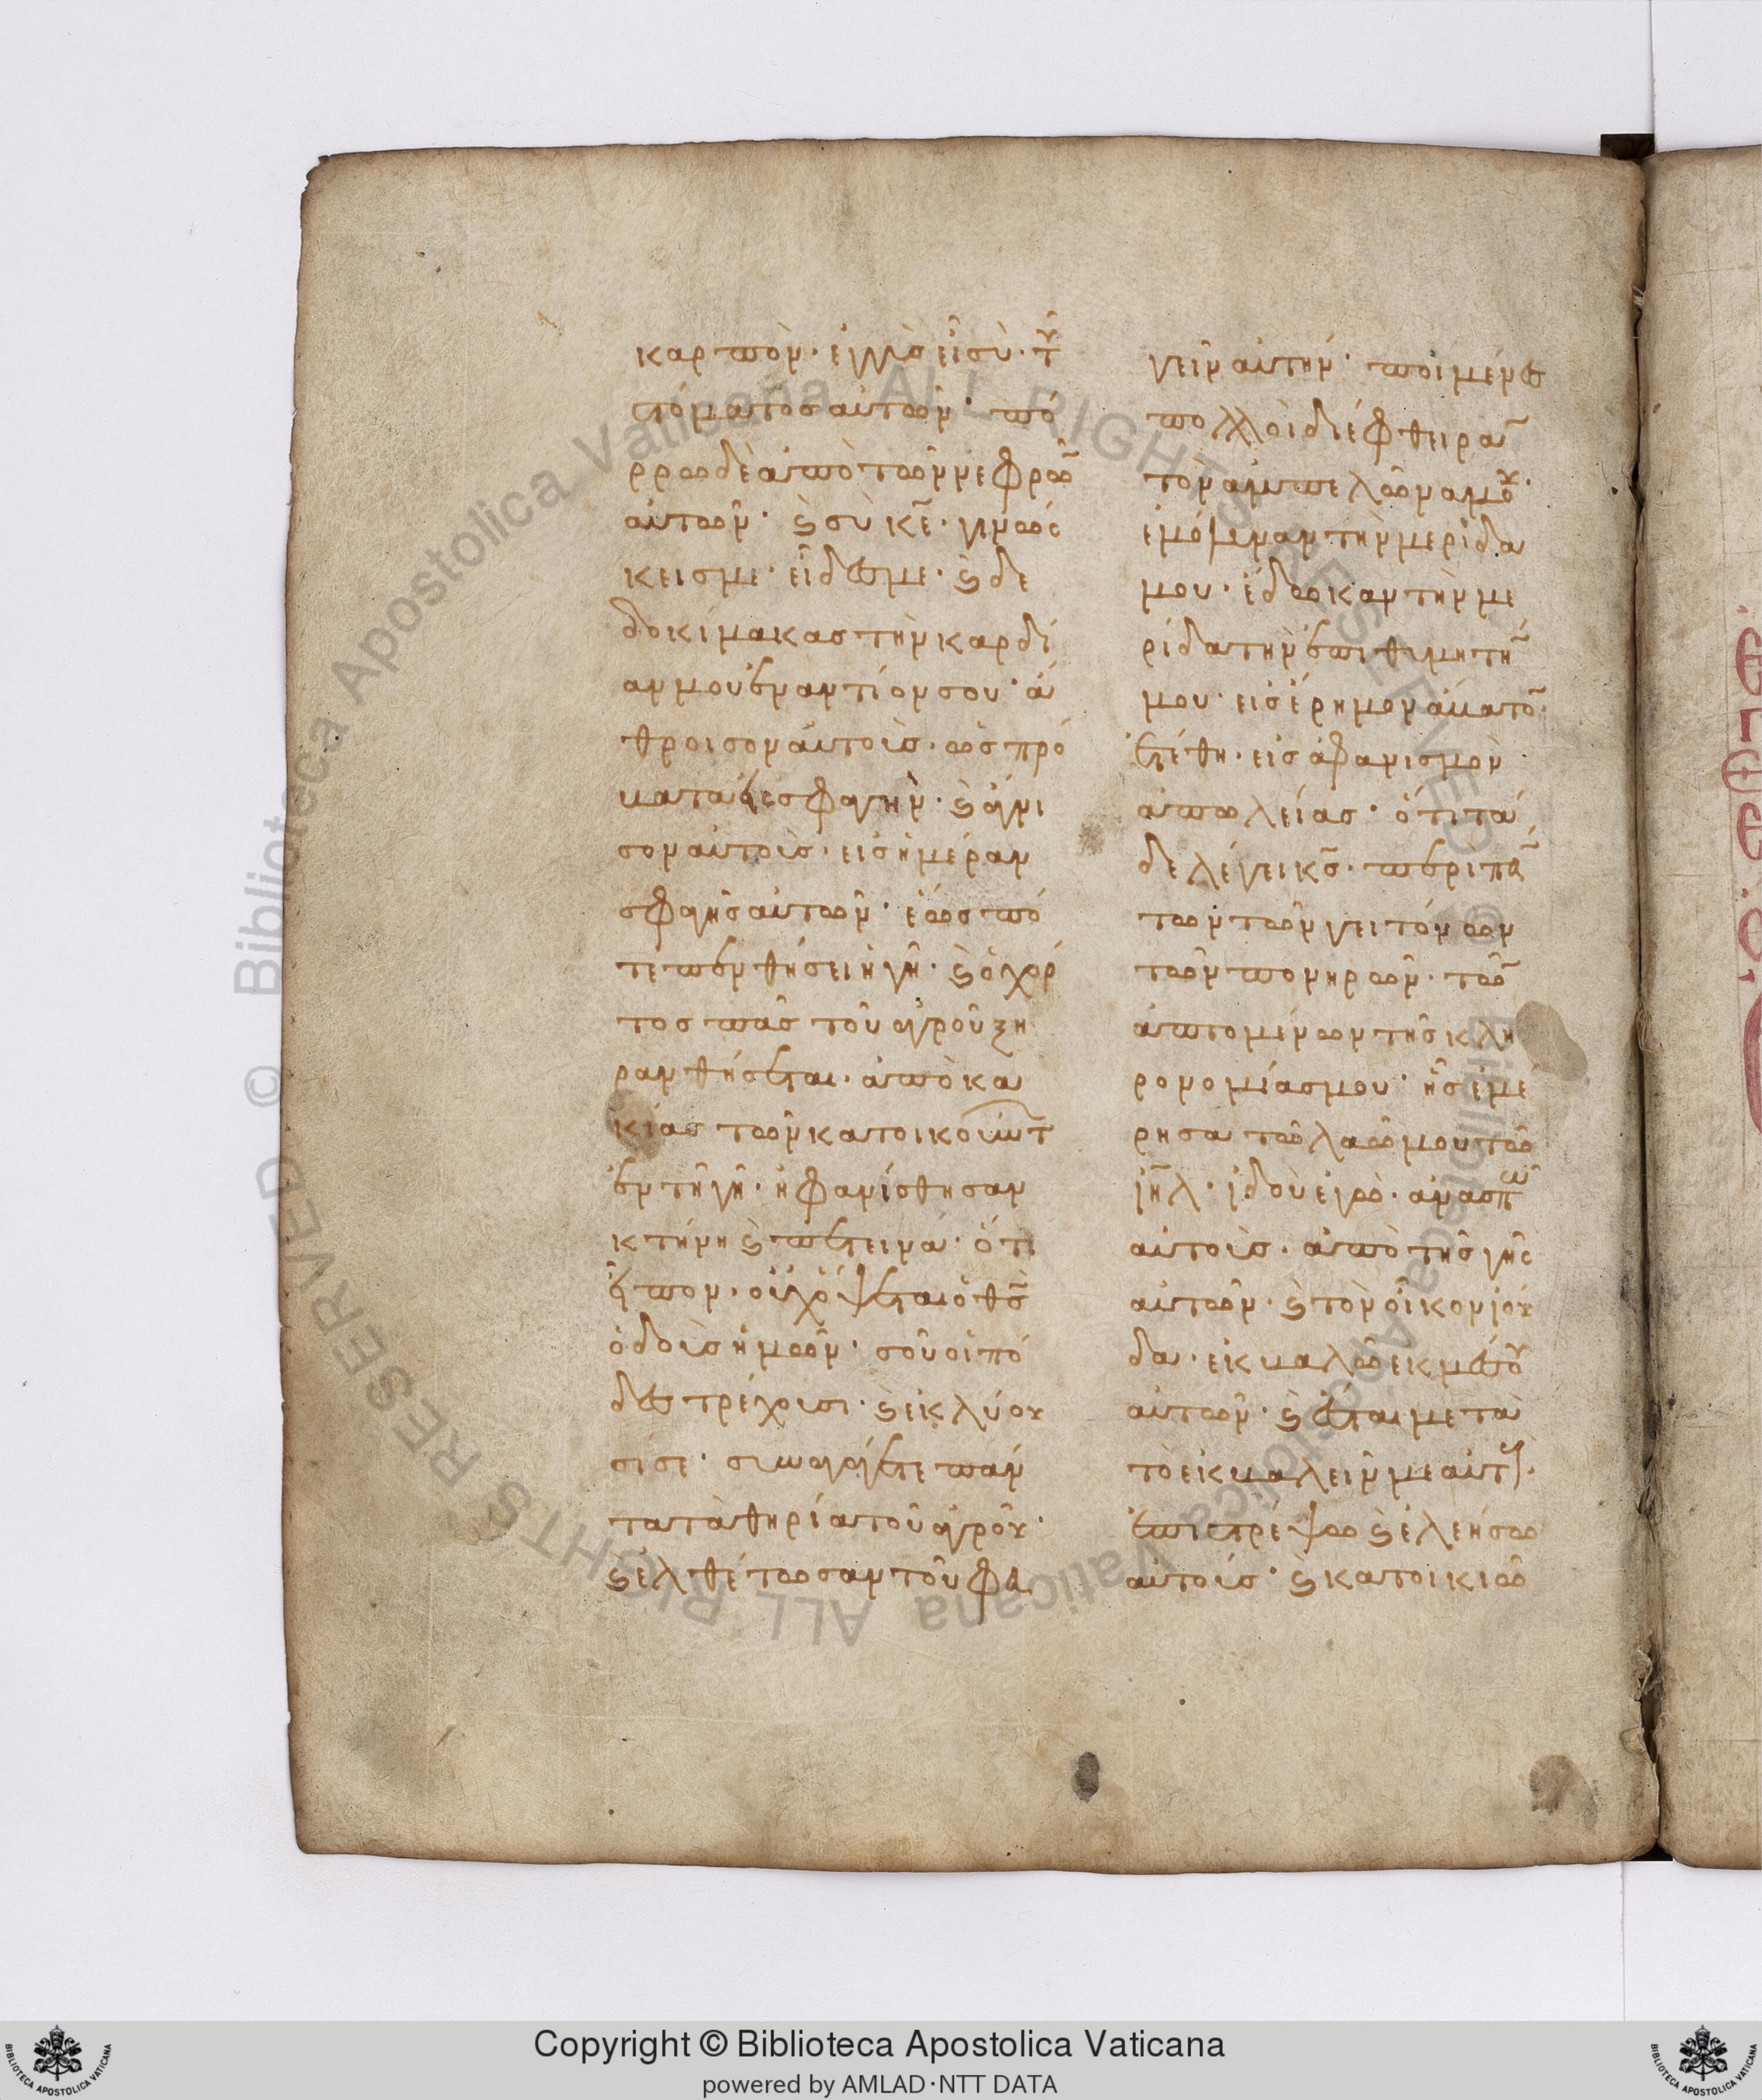 καρπὸν· ἐγγὺς εἶ σὺ· τοῦ
στόματος αὐτῶν· πό
ρρω δὲ ἀπὸ τῶν νεφρῶ̅
αὐτῶν· ϗ σὺ κ̅ε̅· γινώσ
κεις με· εἶδές με· ϗ δε
δοκίμακας τὴν καρδί
αν μου ἐναντίον σου· ἅ
θροισον αὐτοὺς· ὡς πρό
βατα εἰς σφαγὴν· ϗ ἅγνι
σον αὐτοὺς· εἰς ἡμέραν
σφαγῆς αὐτῶν· ἕως πό
τε πενθήσει ἡ γῆ· ϗ ὁ χόρ
τος πᾶς τοῦ ἀγροῦ ξη
ρανθήσεται· ἀπὸ κα
κίας τῶν κατοικούντ
ἐν τῆ γῆ· ἠφανίσθησαν
κτήνη ϗ πετεινά· ὅτι
εἶπον· οὐχ ὄψεται ὁ θ̅ς̅
ὁδοὺς ἡμῶν· σοῦ οἱ πό
δες τρέχουσι· ϗ ἐκλύου
σί σε· συναγάγετε πάν
τα τὰ θηρία τοῦ ἀγροῦ·
ϗ ἐλθέτωσαν τοῦ φα
γεῖν αὐτήν· ποιμένες
πολλοὶ διέφθειρα̅
τὸν ἀμπελῶνα μου·
ἐμόλυναν τὴν μερίδα
μου· ἔδωκαν τὴν με
ρίδα τὴν ἐπιθυμητή̅
μου· εἰς ἔρημον ἄβατο̅·
ἐτέθη· εἰς ἀφανισμὸν
ἀπωλείας· ὅτι τά
δε λέγει κ̅ς̅· περὶ πά̅
των τῶν γειτόνων
τῶν πονηρῶν· τῶ̅
ἁπτομένων τῆς κλη
ρονομίας μου· ἧς ἐμέ
ρησα τῶ λαῶ μου τῶ
ι̅η̅λ· ἰδοὺ ἐγὼ· ἀνασπῶ
αὐτοὺς· ἀπὸ τῆς γῆς
αὐτῶν· ϗ τὸν οἶκον ἰού
δα· ἐκβαλῶ ἐκ μέσου
αὐτῶν· ϗ ἔσται μετὰ
τὸ ἐκβαλεῖν με αὐτούς·
ἐπιστρέψω ϗ ἐλεήσω
αὐτούς· ϗ κατοικιῶ
Copyright © Biblioteca Apostolica Vaticana
powered by AMLAD·NTT DATA